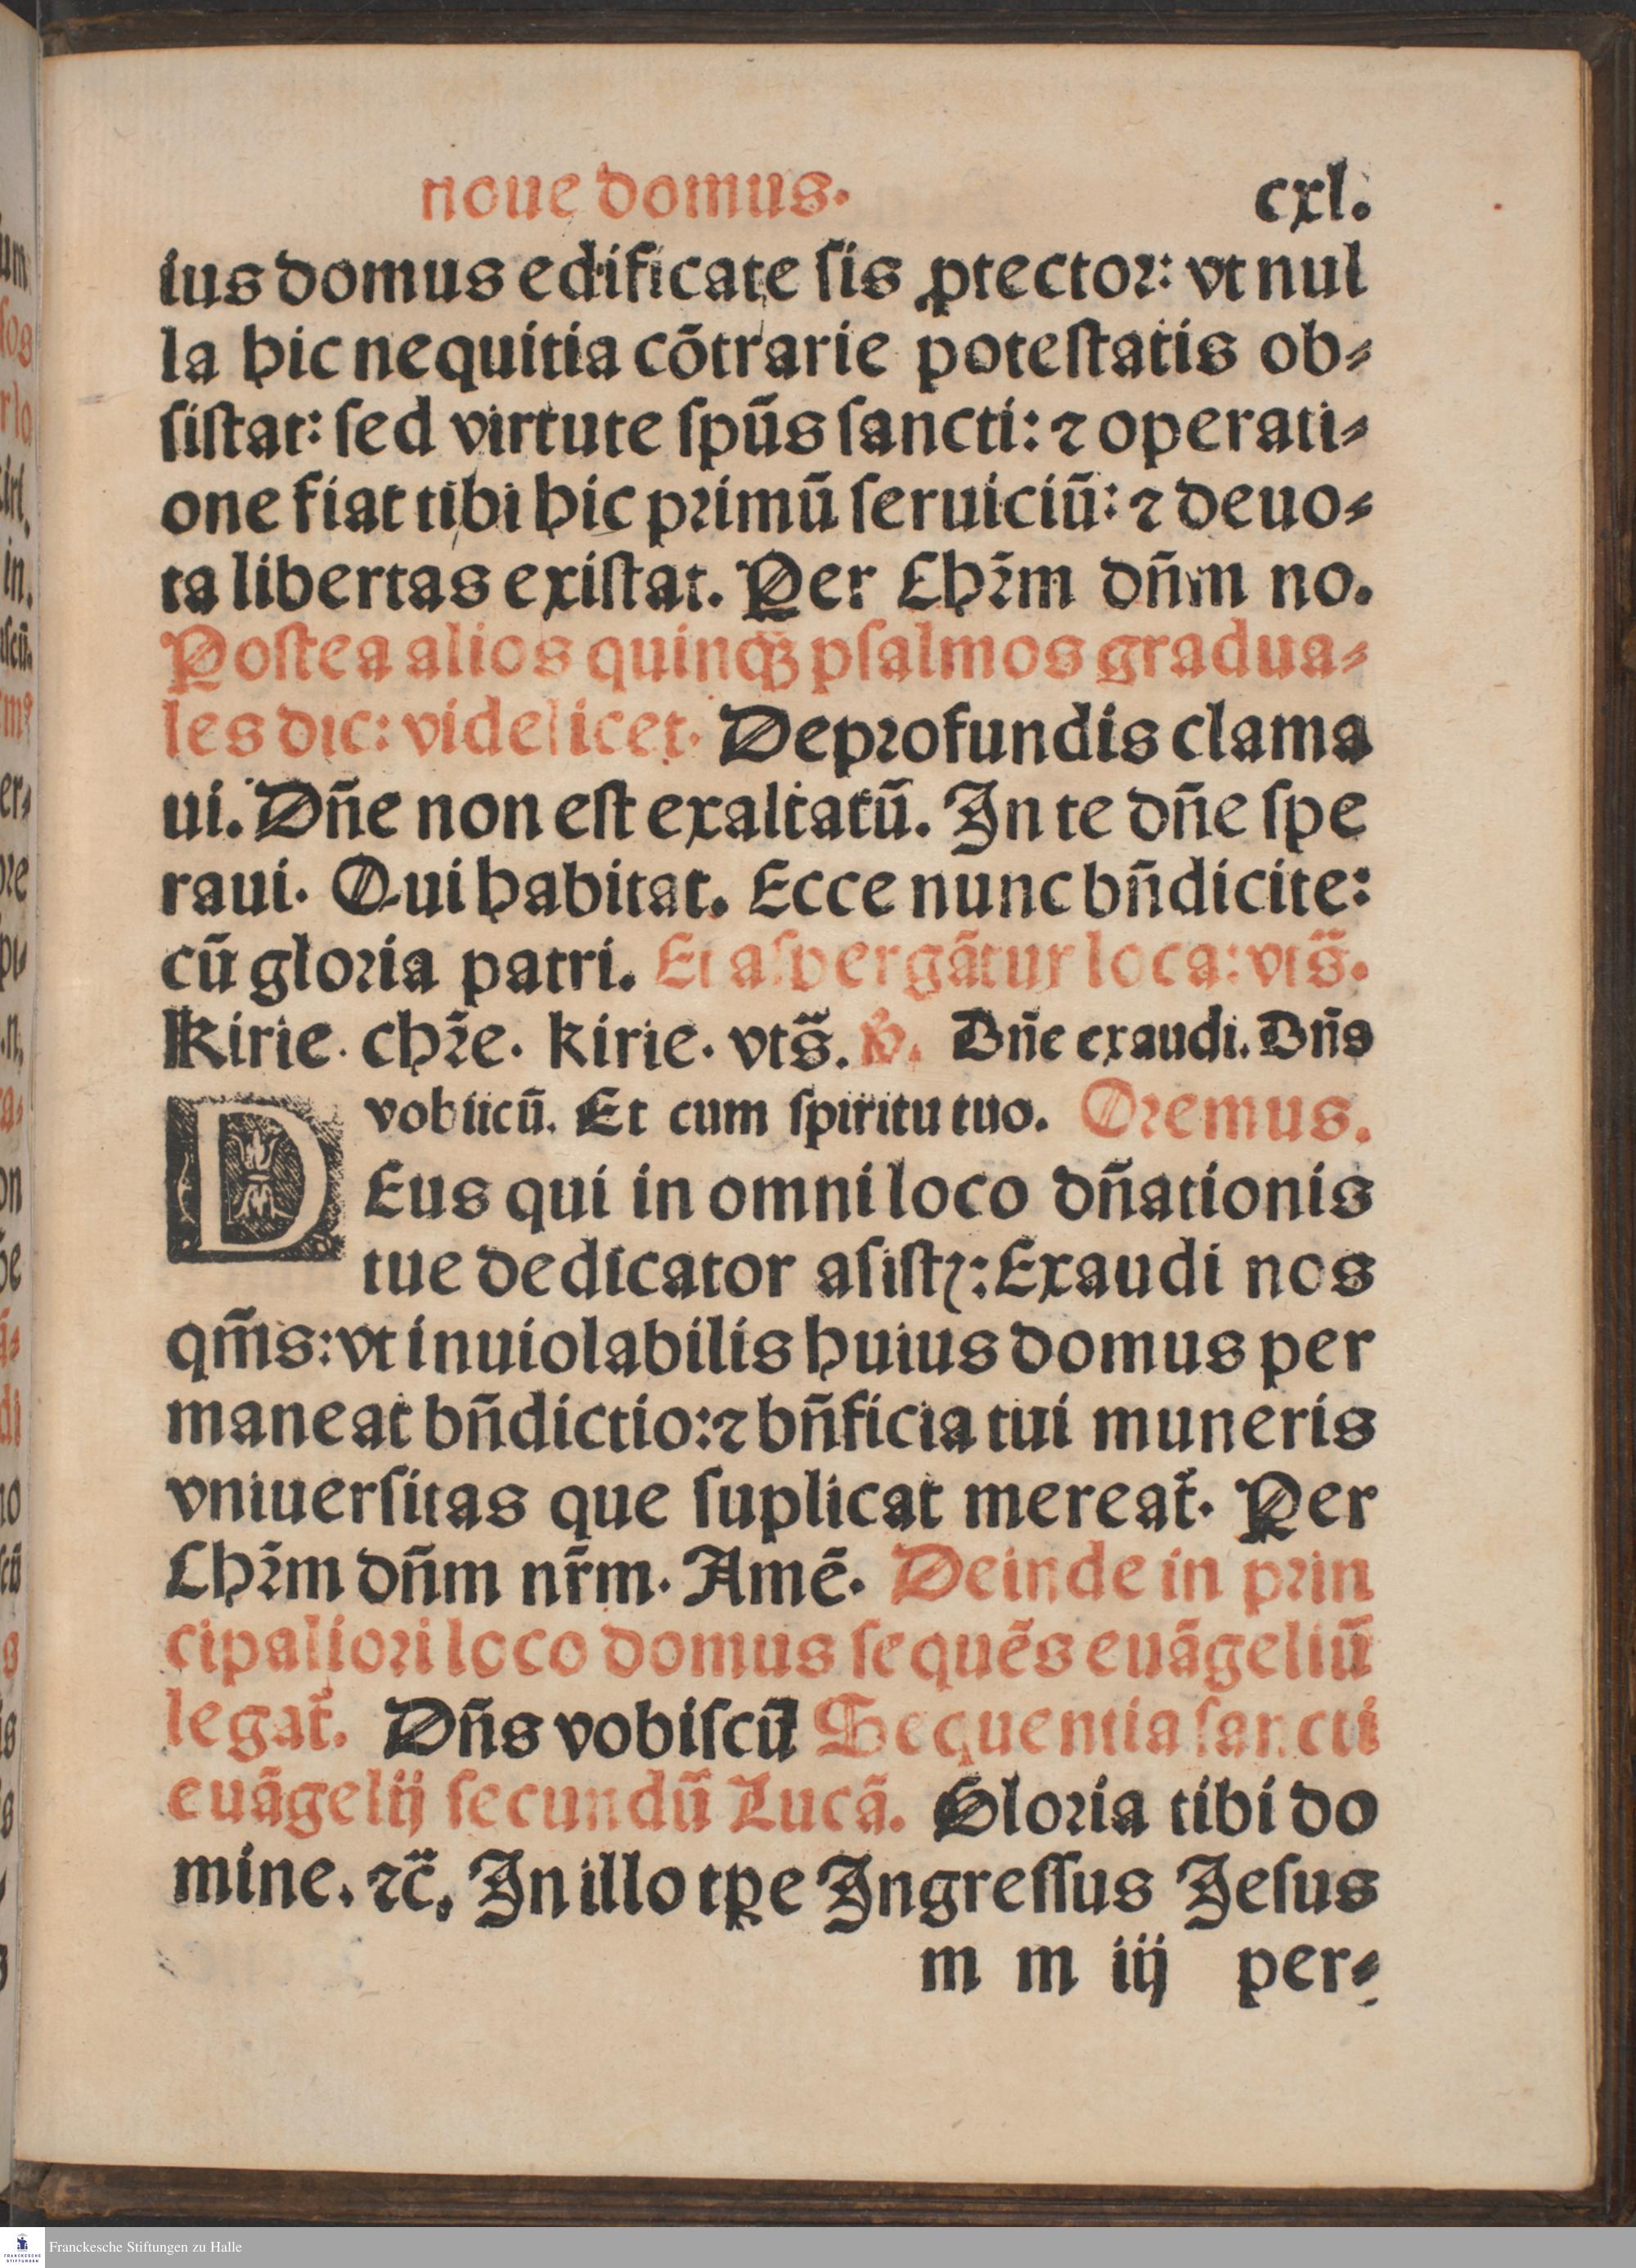 noue domus. cxl.
ius domus edificate ſis ꝓtectoꝛ: vt nul
la hic nequitia cõtrarie poteſtatis ob⸗
ſiſtat: ſed virtute ſpũs ſancti: ⁊ operati⸗
one fiat tibi hic pꝛimũ ſeruiciũ: ⁊ deuo⸗
ta libertas exiſtat. Per Chꝛ̃m dñm no.
Poſtea alios quinqꝫ pſalmos gradua⸗
les dic: videlicet. Depꝛofundis clama
ui. Dñe non eſt exaltatũ. In te dñe ſpe
raui. Qui habitat. Ecce nunc bñdicite:
cũ gloꝛia patri. Et aſpergãtur loca: vts̃.
Kirie. chꝛ̃e. kirie. vts̃. ꝟ. Dñe exaudi. Dñs
vobiſcũ. Et cum ſpiritu tuo. Oꝛemus.
DEus qui in omni loco dñationis
tue dedicator aſiſtꝭ: Exaudi nos
qm̃s: vt inuiolabilis huius domus per
maneat bñdictio: ⁊ bñficia tui muneris
vniuerſitas que ſuplicat mereat᷑. Per
Chꝛ̃m dñm nr̃m. Amẽ. Deinde in pꝛin
cipalioꝛi loco domus ſequẽs euãgeliũ
legat᷑. Dñs vobiſcũ Sequentia ſancti
euãgelij ſecundũ Lucã. Gloꝛia tibi do
mine. ⁊c̃. In illo tꝑe Ingreſſus Jeſus
m m iij per⸗
Franckesche Stiftungen zu Halle